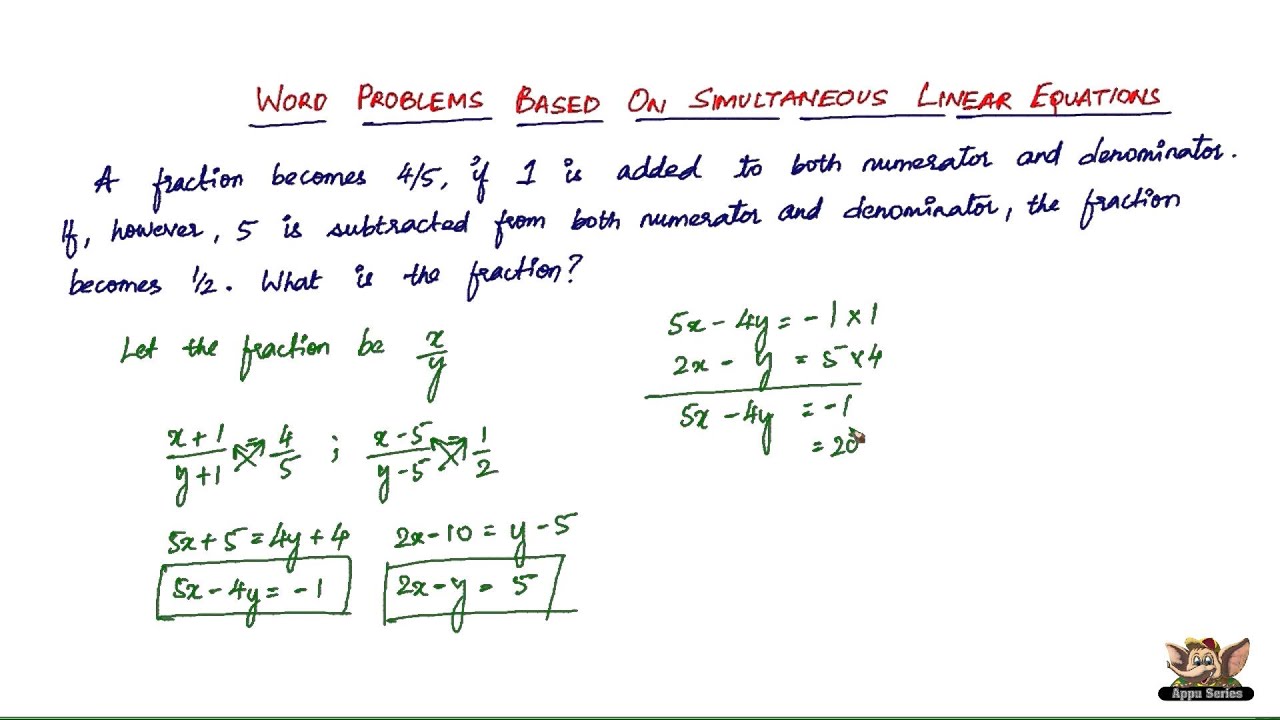 WORD PROBLEMS BASED ON SIMULTANEOUS LINEAR EQUATIONS
A fraction becomes 4/5, if 1 is added to both numerator and denominator.
If, however, 5 is subtracted from both numerator and denominator, the fraction
becomes 1/2. What is the fraction?
Let the fraction be x/y
(x+1)/(y+1) = 4/5 ; (x-5)/(y-5) = 1/2
5x+5=4y+4
5x-4y=-1
2x-10=y-5
2x-y=5
5x-4y=-1×1
2x-y=5×4
5x-4y=-1
=20
Appu Series